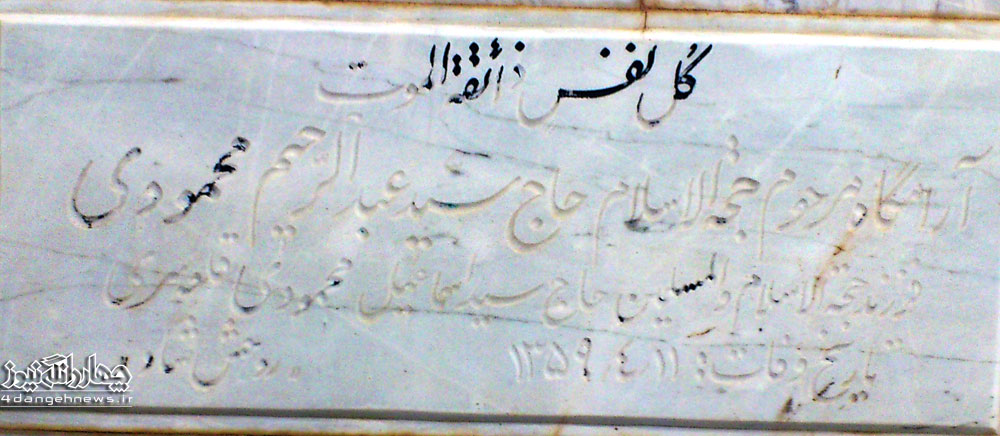 کُل نفس ذائقة الموت
آرامگاه مرحوم حجة الاسلام حاج سید عبدالرّحیم محمودی
فرزند حجة الاسلام والمسلمین حاج سید اسماعیل محمودی
تاریخ وفات: ۱۳۵۹/۴/۱۱ روحش شاد
چهاردانگه نیوز
4dangehnews.ir